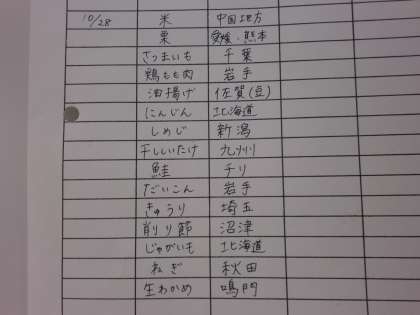 10/28 米 中国地方
栗 愛媛・熊本
さつまいも 千葉
鶏もも肉 岩手
油揚げ 佐賀(豆)
にんじん 北海道
しめじ 新潟
干ししいたけ 九州
鮭 チリ
だいこん 岩手
きゅうり 埼玉
削り節 沼津
じゃがいも 北海道
ねぎ 秋田
生わかめ 鳴門